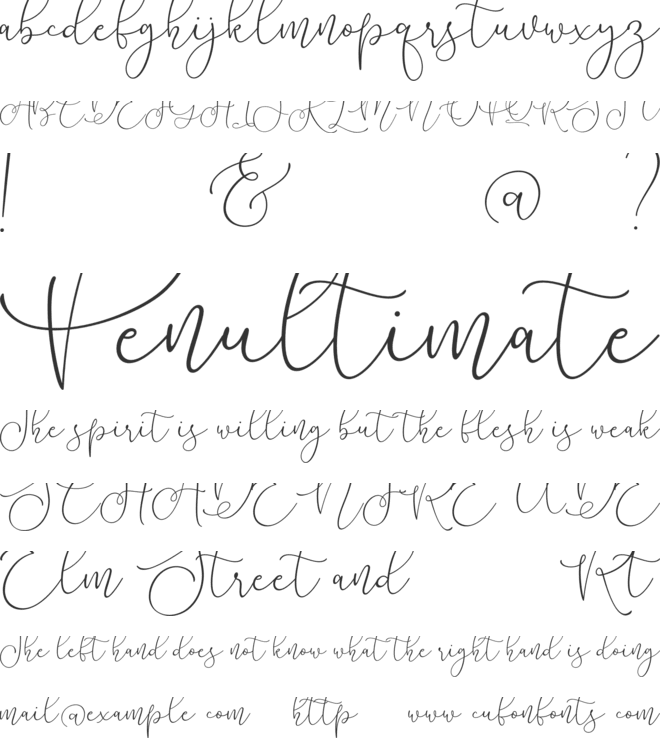 abcdefghijklmnopqrstuvwxyz
ABCDEFGHIJKLMNOPQRSTU
! & @ ?
Penultimate
The spirit is willing but the flesh is weak
SCHADENFREUDE
Elm Street and Rt
The left hand does not know what the right hand is doing
mail@example com http www cufonfonts com